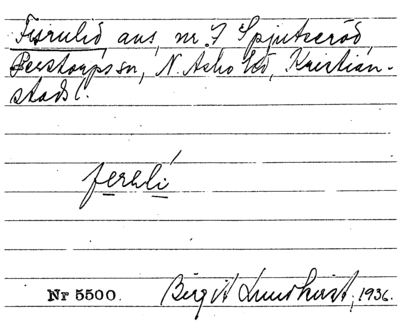 Fisrulid avs, nr. 7 Spjutseröd,
Perstorps sn, N. Åsbo hd, Kristian-
stads l.
Nr 5500. Birgit Lundkvist, 1936.